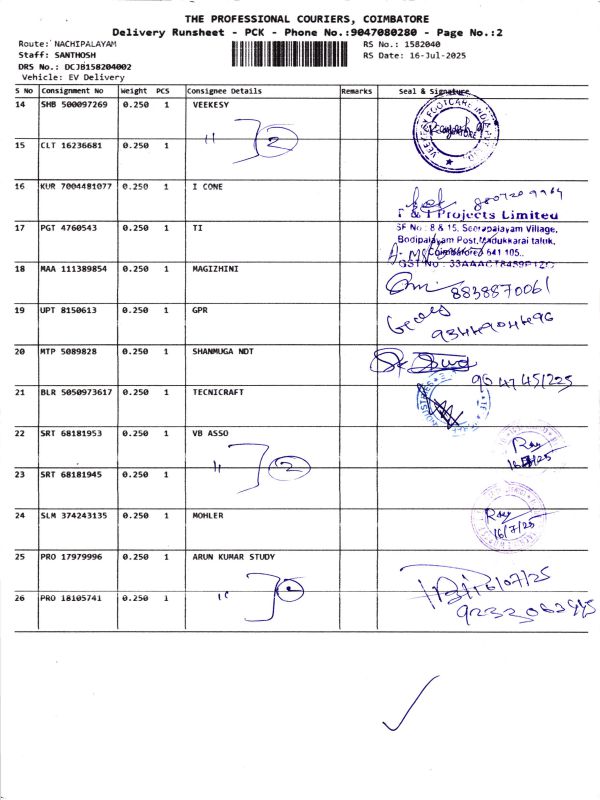 THE PROFESSIONAL COURIERS, COIMBATORE
Delivery Runsheet - PCK - Phone No.:9047080280 - Page No.:2
Route: NACHIPALAYAM
RS No.: 1582040
Staff: SANTHOSH
RS Date: 16-Jul-2025
DRS No.: DCJB158204002
Vehicle: EV Delivery
S No Consignment No Weight PCS Consignee Details Remarks Seal & Signature
14 SHB 500097269 0.250 1 VEEKESY
" 2
15 CLT 16236681 0.250 1
16 KUR 7004481077 0.250 1 I CONE
T & I Projects Limited
17 PGT 4760543 0.250 1 TI
SF No : 8 & 15, Seerapalayam Village,
Bodipalayam Post, Madukkarai taluk,
Coimbatore 641 105..
18 MAA 111389854 0.250 1 MAGIZHINI
8838870061
19 UPT 8150613 0.250 1 GPR
9344904496
20 MTP 5089828 0.250 1 SHANMUGA NDT
9047451225
21 BLR 5050973617 1 0.250 1 TECNICRAFT
22 SRT 68181953 0.250 1 VB ASSO
" 2
23 SRT 68181945 0.250 1
24 SLM 374243135 0.250 1 MOHLER
16/7/25
25 PRO 17979996 0.250 1 ARUN KUMAR STUDY
16/07/25
26 PRO 18105741 0.250 1
"